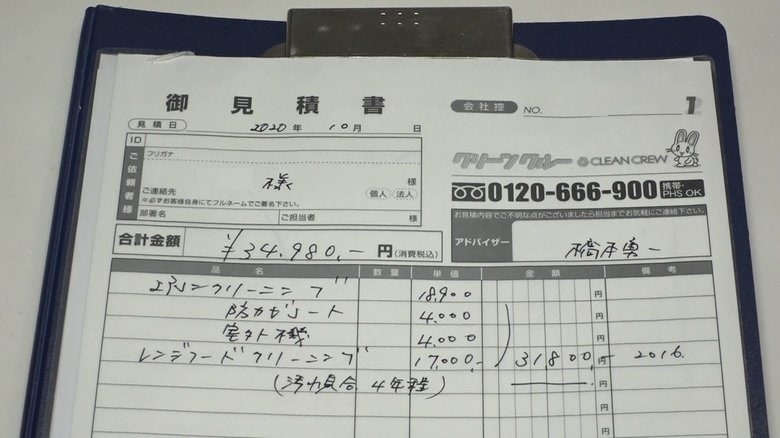 御見積書
会社控 NO. 1
見積日 2020年 10月 日
ID
フリガナ
ご依頼者様
様 様
ご連絡先 個人 法人
※必ずお客様自身にてフルネームでご署名下さい。
部署名 ご担当者 様
クリーンクルー CLEAN CREW
0120-666-900 携帯・PHS OK
お見積内容でご不明な点がございましたら担当までお気軽にご連絡下さい。
アドバイザー 橋本勇一
合計金額 ¥34,980,- 円 (消費税込)
品名 数量 単価 金額 備考
エアコンクリーニング 18,900 円
防カビコート 4,000 円
室外機 4,000 円
レンジフードクリーニング 17,000,- 31800,- 円 2016.
(汚れ具合 4年程) 円
円
円